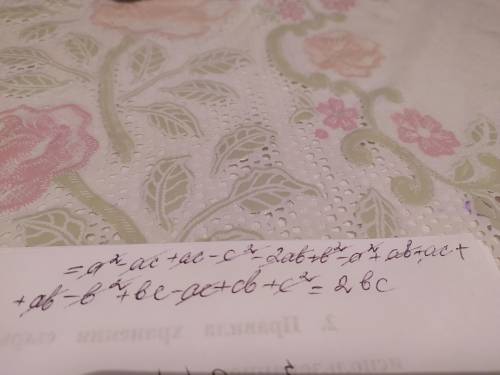 = a² - ac + ac - c² - 2ab + b² - a² + ab + ac +
+ ab - b² + bc - ac + cb + c² = 2bc
2. Правила хранения